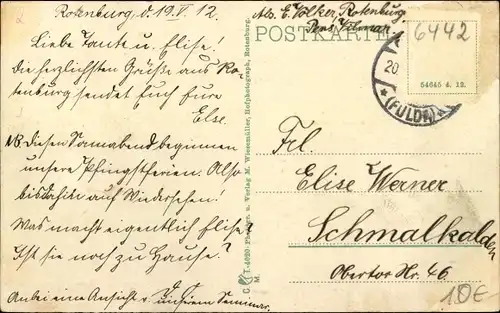 Rotenburg, d. 19.V.12.
Liebe Tante u. Elise!
Die herzlichsten Grüße aus Ro-
tenburg sendet Euch Eure
Else.
NB. Diesen Sonnabend beginnen
unsere Pfingstferien. Also
bis dahin auf Wiedersehen!
Was macht eigentlich Elise?
Ist sie noch zu Hause?
Anbei eine Ansicht v. unserem Seminar.
Abs. E. Rotenburg
Pens. Vilmar
POSTKARTE
6442
54645 4. 12.
20
* (FULDA) *
Frl.
Elise Werner
Schmalkalden
Obertor Nr. 46
10€
T. 4020 Photogr. u. Verlag M. Wiesemüller, Hofphotograph, Rotenburg.